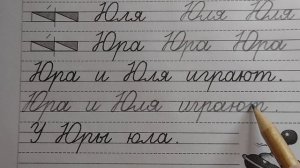 Юля Юля Юля
Юра Юра Юра
Юра и Юля играют.
Юра и Юля играют.
У Юры юла.